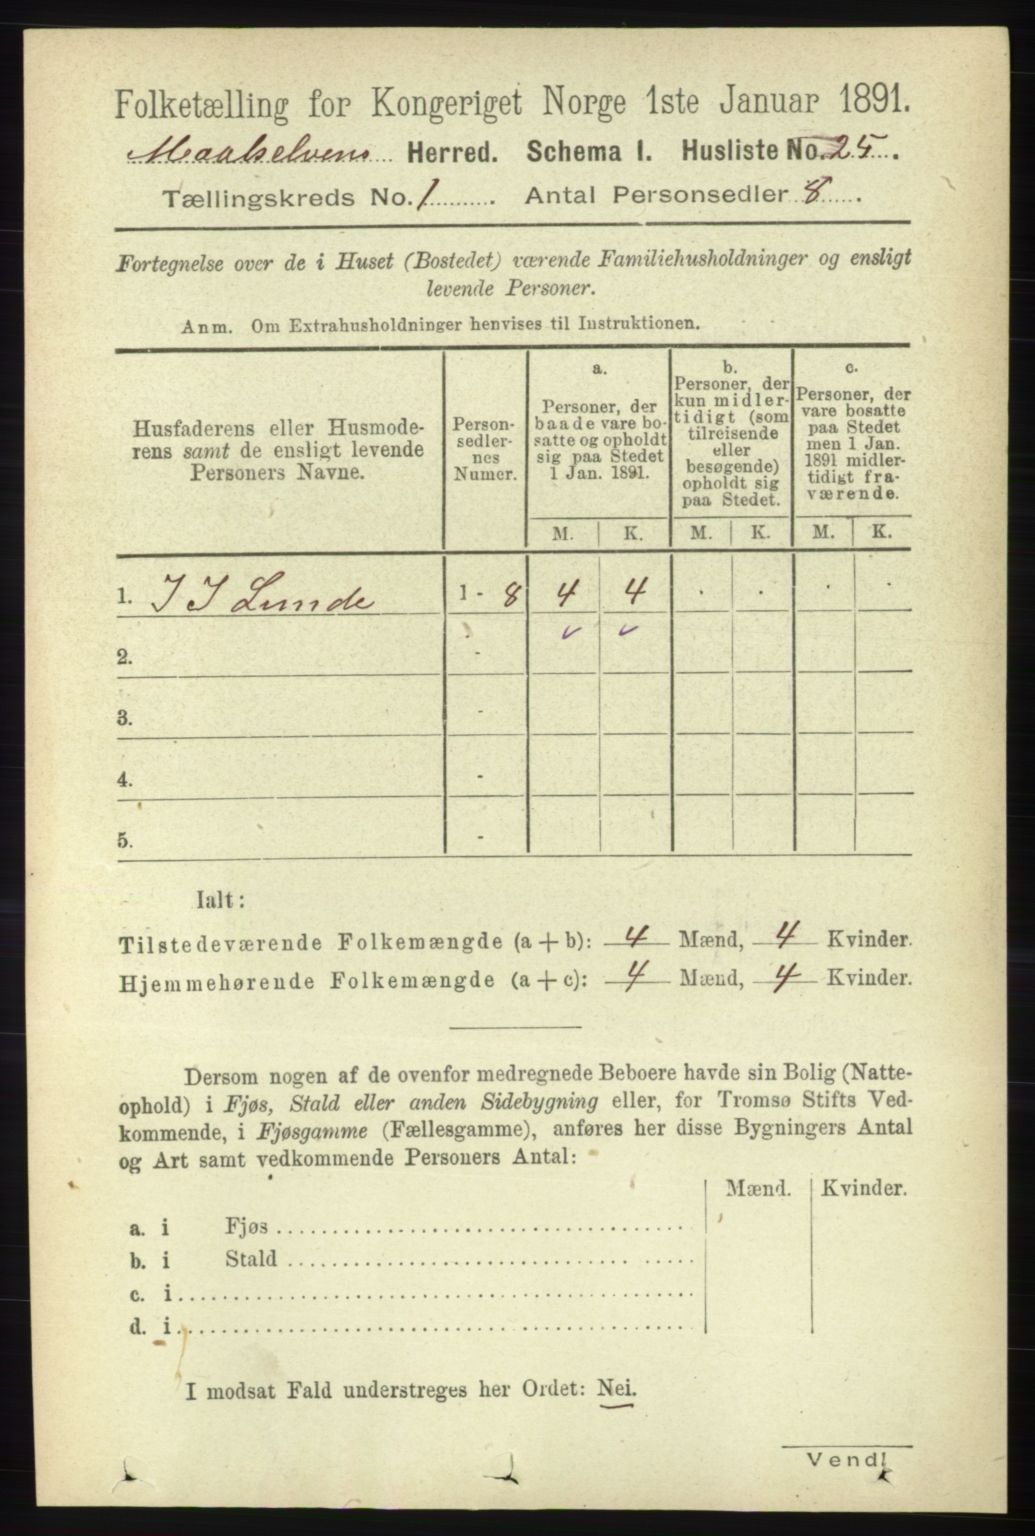 Folketælling for Kongeriget Norge 1ste Januar 1891.
Maalselvens Herred. Schema I. Husliste No. 25.
Tællingskreds No. 1. Antal Personsedler 8.
Fortegnelse over de i Huset (Bostedet) værende Familiehusholdninger og ensligt
levende Personer.
Anm. Om Extrahusholdninger henvises til Instruktionen.
Husfaderens eller Husmode-
rens samt de ensligt levende
Personers Navne.
Person-
sedler-
nes
Numer.
a.
Personer, der
baade vare bo-
satte og opholdt
sig paa Stedet
1 Jan. 1891.
b.
Personer, der
kun midler-
tidigt (som
tilreisende
eller
besøgende)
opholdt sig
paa Stedet.
c.
Personer, der
vare bosatte
paa Stedet
men 1 Jan.
1891 midler-
tidigt fra-
værende.
M. K. M. K. M. K.
1. I I Lunde 1 - 8 4 4 . . . .
2. -
3. -
4. -
5. -
Ialt:
Tilstedeværende Folkemængde (a + b): 4 Mænd, 4 Kvinder.
Hjemmehørende Folkemængde (a + c): 4 Mænd, 4 Kvinder.
Dersom nogen af de ovenfor medregnede Beboere havde sin Bolig (Natte-
ophold) i Fjøs, Stald eller anden Sidebygning eller, for Tromsø Stifts Ved-
kommende, i Fjøsgamme (Fællesgamme), anføres her disse Bygningers Antal
og Art samt vedkommende Personers Antal:
Mænd. Kvinder.
a. i Fjøs
b. i Stald
c. i
d. i
I modsat Fald understreges her Ordet: Nei.
Vend!